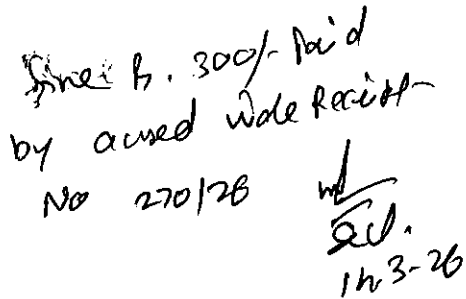 Fine Rs. 300/- Paid
by acused vide Receipt
No 270/26
3-26